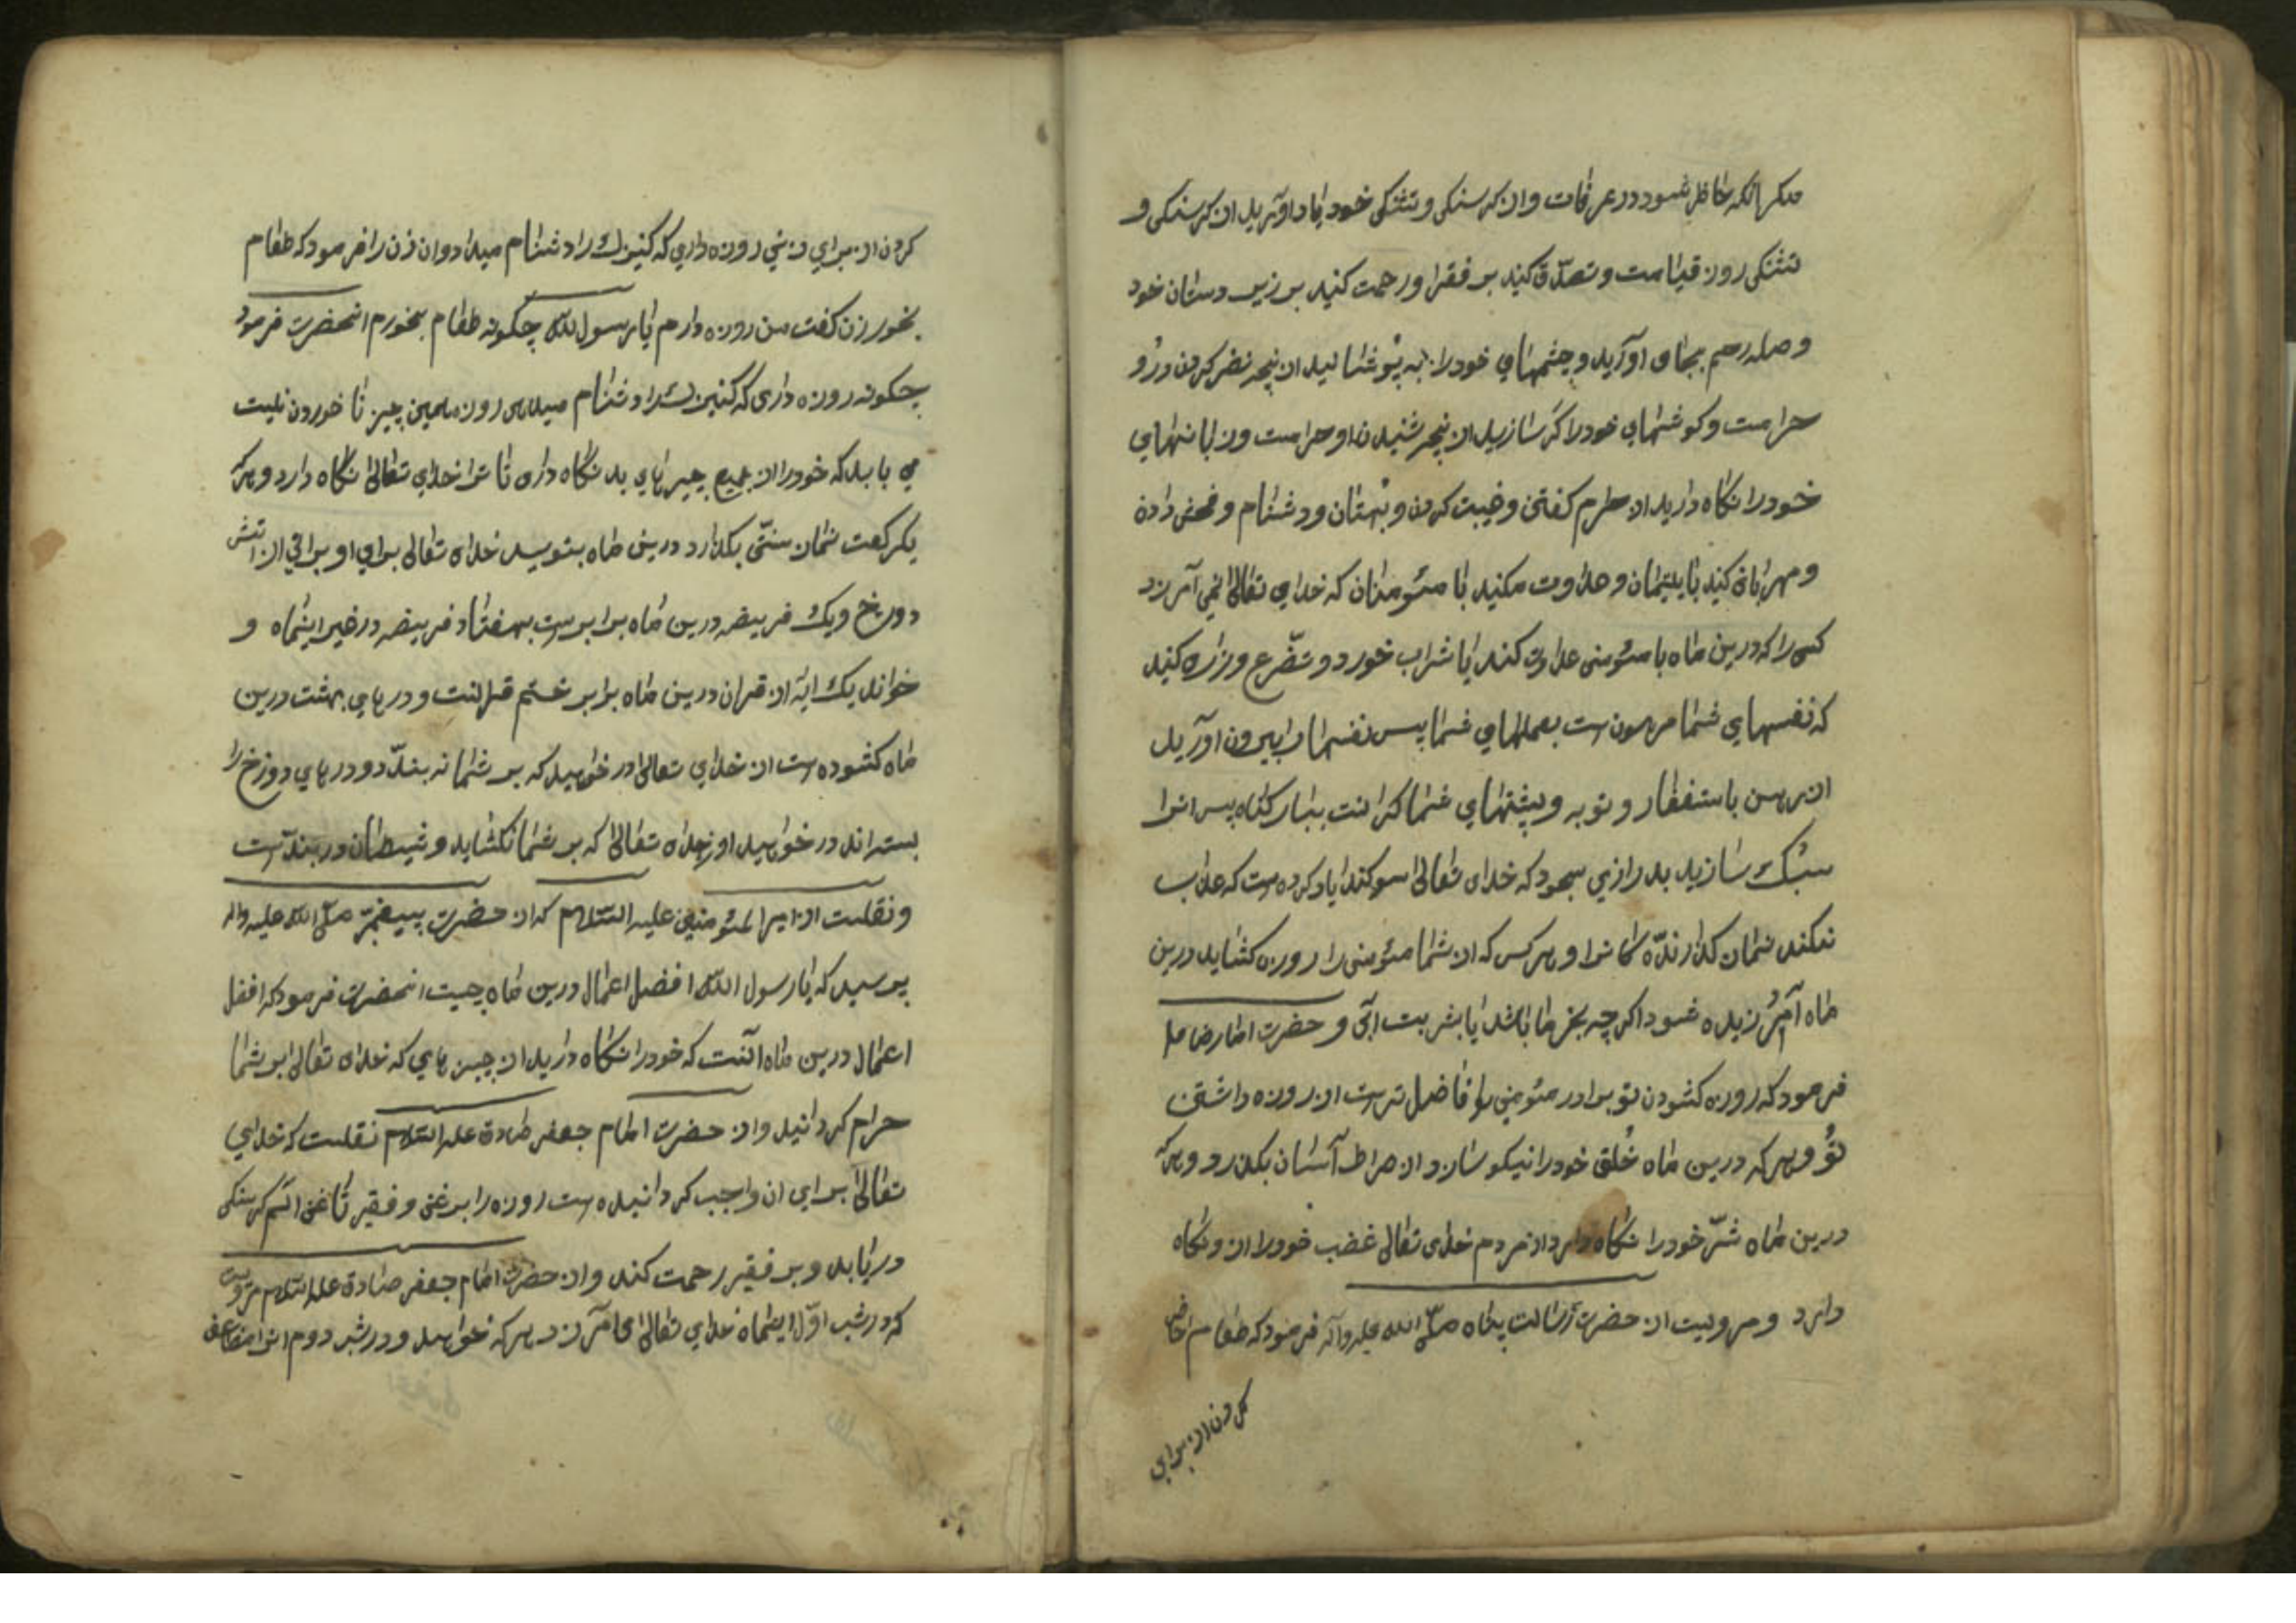 مکر انکه حاظر شود در عرفات و از کرسنکی و تشنکی خود یاد اورید از کرسنکی و
تشنکی روز قیامت و تصدّق کنید بر فقرا و رحمت کنید بر زیر دستان خود
و صله رحم بجای اورید و چشمهای خود را به پوشانید از نچه نضر کردن درو
حرامت و کوشهای خود را کر سازید از نچه شنیدن او حرامست و زبانهای
خود را نکاه دارید از حرام کفتن و غیبت کردن و بهتان و دشنام و فحش دادن
و مهربانی کنید با یتیمان و عداوت مکنید با مئومنان که خدای تعالی نمی آمرزد
کسی را که درین ماه با مئومنی عداوت کند یا شراب خورد و تضّرع و زاری کنید
که نفسهای شما مرهونست بعملهای شما پس نفسها را بیرون اورید
از رهن باستغفار و توبه و پشتهای شما کرانست ببار کناه پس انرا
سبک سازید بدرازی سجود که خدای تعالی سوکند یاد کرده ست که عذاب
نکند نماز کذارندّه کانرا و هر کس که از شما مئومنی را روزه کشاید درین
ماه آمرزیده شود اکرچه بخرما باشد یا بشربت ابی و حضرت امام رضا علیه
فرمود که روزه کشودن تو برادر مئومنی را فاضل ترست از روزه داشتن
تو و هر که درین ماه خُلق خود را نیکو سازد از صراط آسان بکذرد و هرکه
درین ماه شرّ خود را نکاه دارد از مردم خدای تعالی غضب خود را از و نکاه
دارد و مرویست از حضرت رسالت پناه صلّی الله علیه وآله فرمود که طعام حاضر
کردن از برای
کردن از برای زنی روزه داری که کنیزک را دشنام میداد و ان زن را فرمود که طعام
بخور زن کفت من روزه دارم یا رسول الله چکونه طعام بخورم انحضرت فرمود
چکونه روزه داری که کنیزک را دشنام میدهی روزه همین چیز نا خوردن نیست
می باید که خود را از جمیع چیزهای بد نکاه داری تا ترا خدای تعالی نکاه دارد و هرکه
یکرکعت نماز سنتّی بکذارد درین ماه بنویسد خدای تعالی برای او براتی از اتش
دوزخ و یک فریضه درین ماه برابرست بهفتاد فریضه در غیر اینماه و
خواند یک ایه از قران درین ماه برابر ختم قرانست و درهای بهشت درین
ماه کشوده ست از خدای تعالی در خواهید که بر شما نه بندّد و درهای دوزخ را
بسته اند در خواهید از خدای تعالی که بر شما نکشاید و شیطان در بندست
و نقلست از امیر المئومنین علیه السّلام که از حضرت پیغمبر صلّی الله علیه واله
پرسید که یا رسول الله افضل اعمال درین ماه چیست انحضرت فرمود که افضل
اعمال درین ماه انست که خود را نکاه دارید از چیزهایی که خدای تعالی بر شما
حرام کردانید و از حضرت امام جعفر صادق علیه السّلام نقلست که خدای
تعالی برای ان واجب کردانیده ست روزه را بر غنی و فقیر تا غنی الم کرسنکی
دریابد و بر فقیر رحمت کند و از حضرت امام جعفر صادق علیه السّلام مرویست
که در شب اوّل اینماه خدای تعالی می آمرزد هر که خواهد و در شب دوم انرا مضاعف